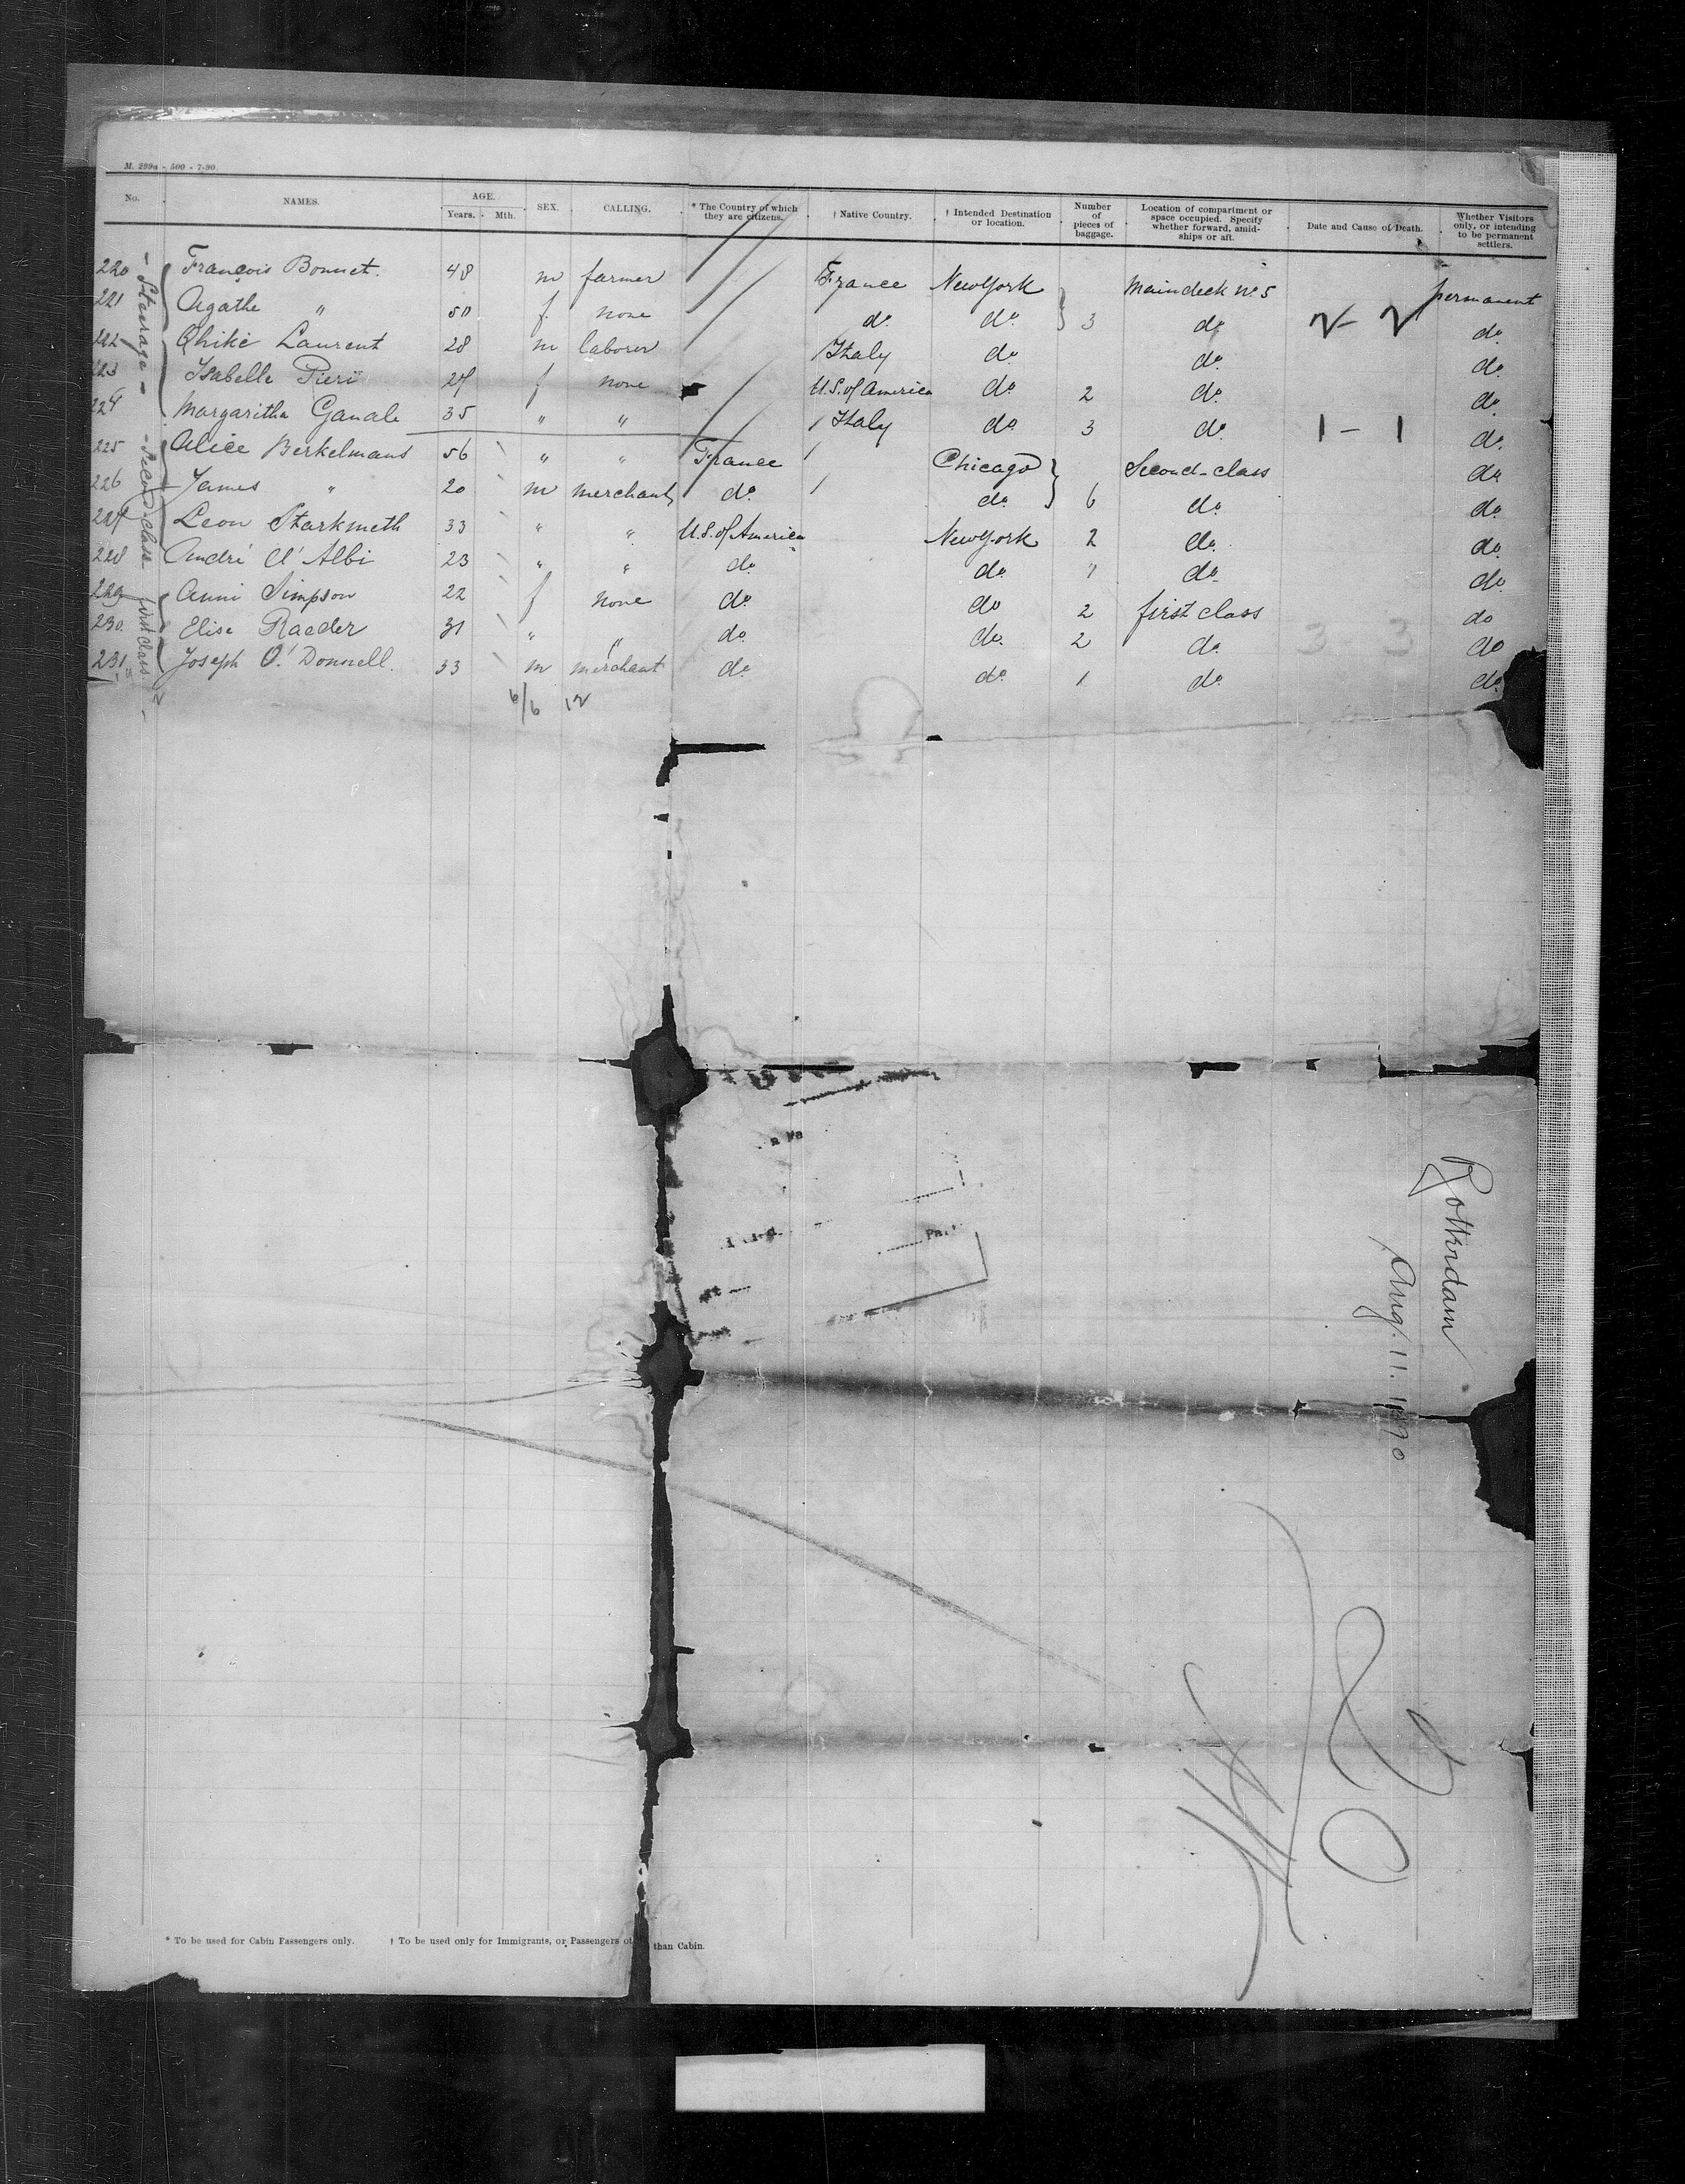 M. 299a - 500 - 7-90
No. NAMES. AGE. Years. Mth. SEX. CALLING. * The Country of which they are citizens. † Native Country. † Intended Destination or location. Number of pieces of baggage. Location of compartment or space occupied. Specify whether forward, amidships or aft. Date and Cause of Death. Whether Visitors only, or intending to be permanent settlers.
- Steerage -
220 François Bonnet. 48 m farmer France New York Maindeck no. 5 permanent
221 Agathe " 50 f. none do. do. 3 do. 2 - 2 do.
222 Laurent 28 m laborer Italy do. do. do.
223 Isabelle Pieri 27 f none U.S. of America do. 2 do. do.
224 Margaritha Ganale 35 " " Italy do. 3 do. 1 - 1 do.
- Second class
225 Alice Berkelmans 56 " " France Chicago Second-class do.
226 James " 20 m merchant do. do. 6 do. do.
227 Leon Starkmeth 33 " " U.S. of America New York 2 do. do.
228 André d'Albi 23 " " do. do. 1 do. do.
first class -
229 Anni Simpson 22 f none do. do 2 first class do
230. Elise Raeder 31 " " do. do. 2 do. 3 3 do
231 Joseph O'Donnell. 33 m merchant do. do. 1 do. do.
6/6 12
Rotterdam
Aug. 11. 1890
* To be used for Cabin Passengers only. † To be used only for Immigrants, or Passengers than Cabin.